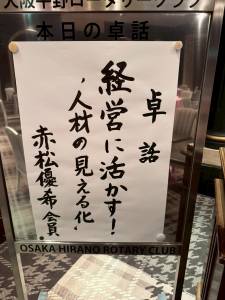 大阪平野ロータリークラブ
本日の卓話
卓話
経営に活かす!
"人材の見える化"
赤松優希会員
OSAKA HIRANO ROTARY CLUB